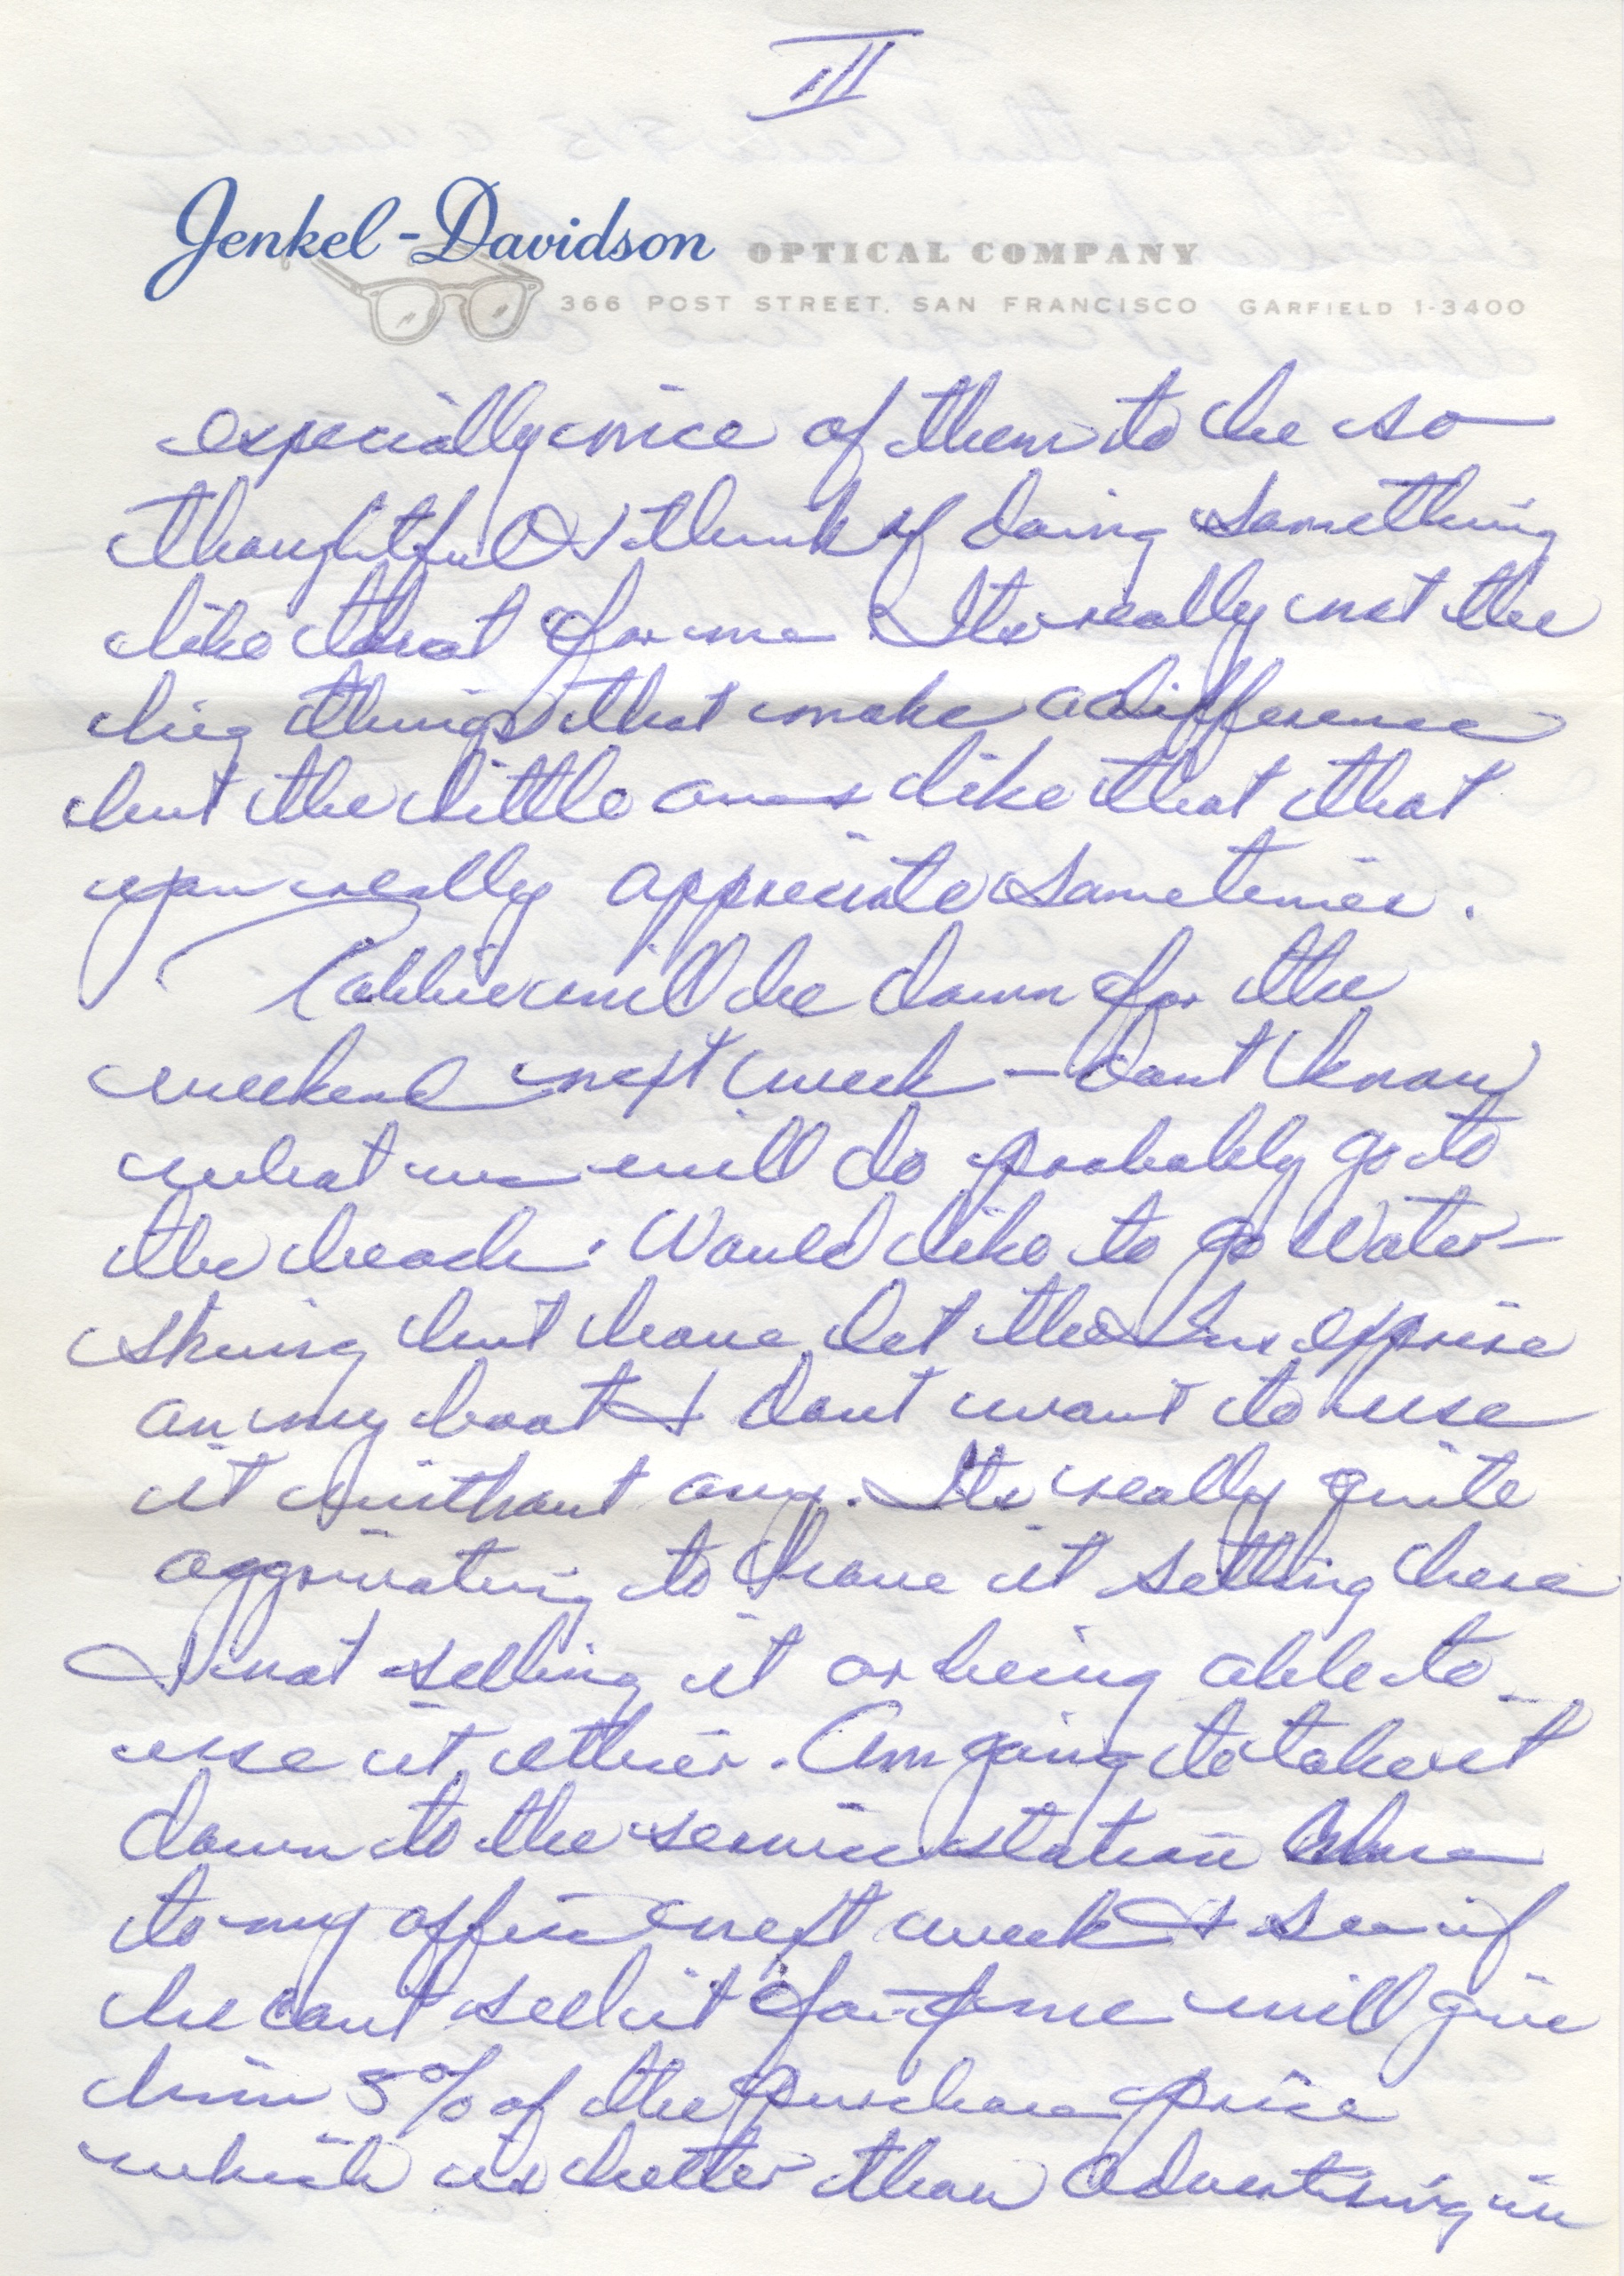 III
Jenkel-Davidson OPTICAL COMPANY
366 POST STREET, SAN FRANCISCO GARFIELD 1-3400
especially nice of them to be so
thoughtful & think of doing something
like that for me. Its really not the
big things that make a difference
but the little ones like that that
you really appreciate sometimes.
will be down for the
weekend next week – dont know
what we will do probably go to
the beach. Would like to go Water-
skiing but have let the Ins expire
on my boat & dont want to use
it without any. Its really quite
aggrivating to have it setting here
& not selling it or being able to
use it either. Am going to take it
down to the service station
to my office next week & see if
he cant sell it for me will give
him 5% of the purchase price
which is better than advertising in